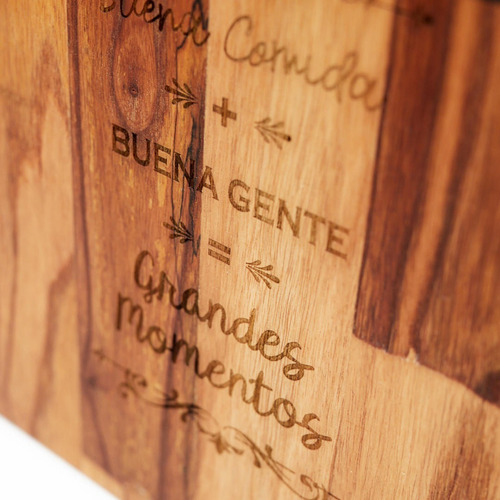 Buena Comida
+
BUENA GENTE
=
Grandes
Momentos